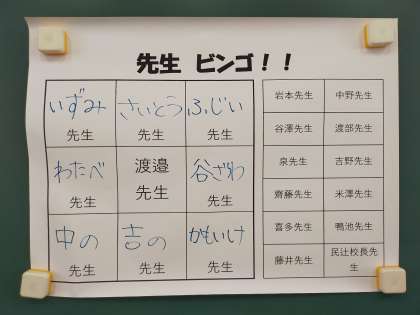 先生 ビンゴ！！
いずみ さいとう ふじい
先生 先生 先生
わたべ 渡邉先生 谷ざわ
先生 先生
中の 吉の かもいけ
先生 先生 先生
岩本先生 中野先生
谷澤先生 渡部先生
泉先生 吉野先生
齋藤先生 米澤先生
喜多先生 鴨池先生
藤井先生 民辻校長先生